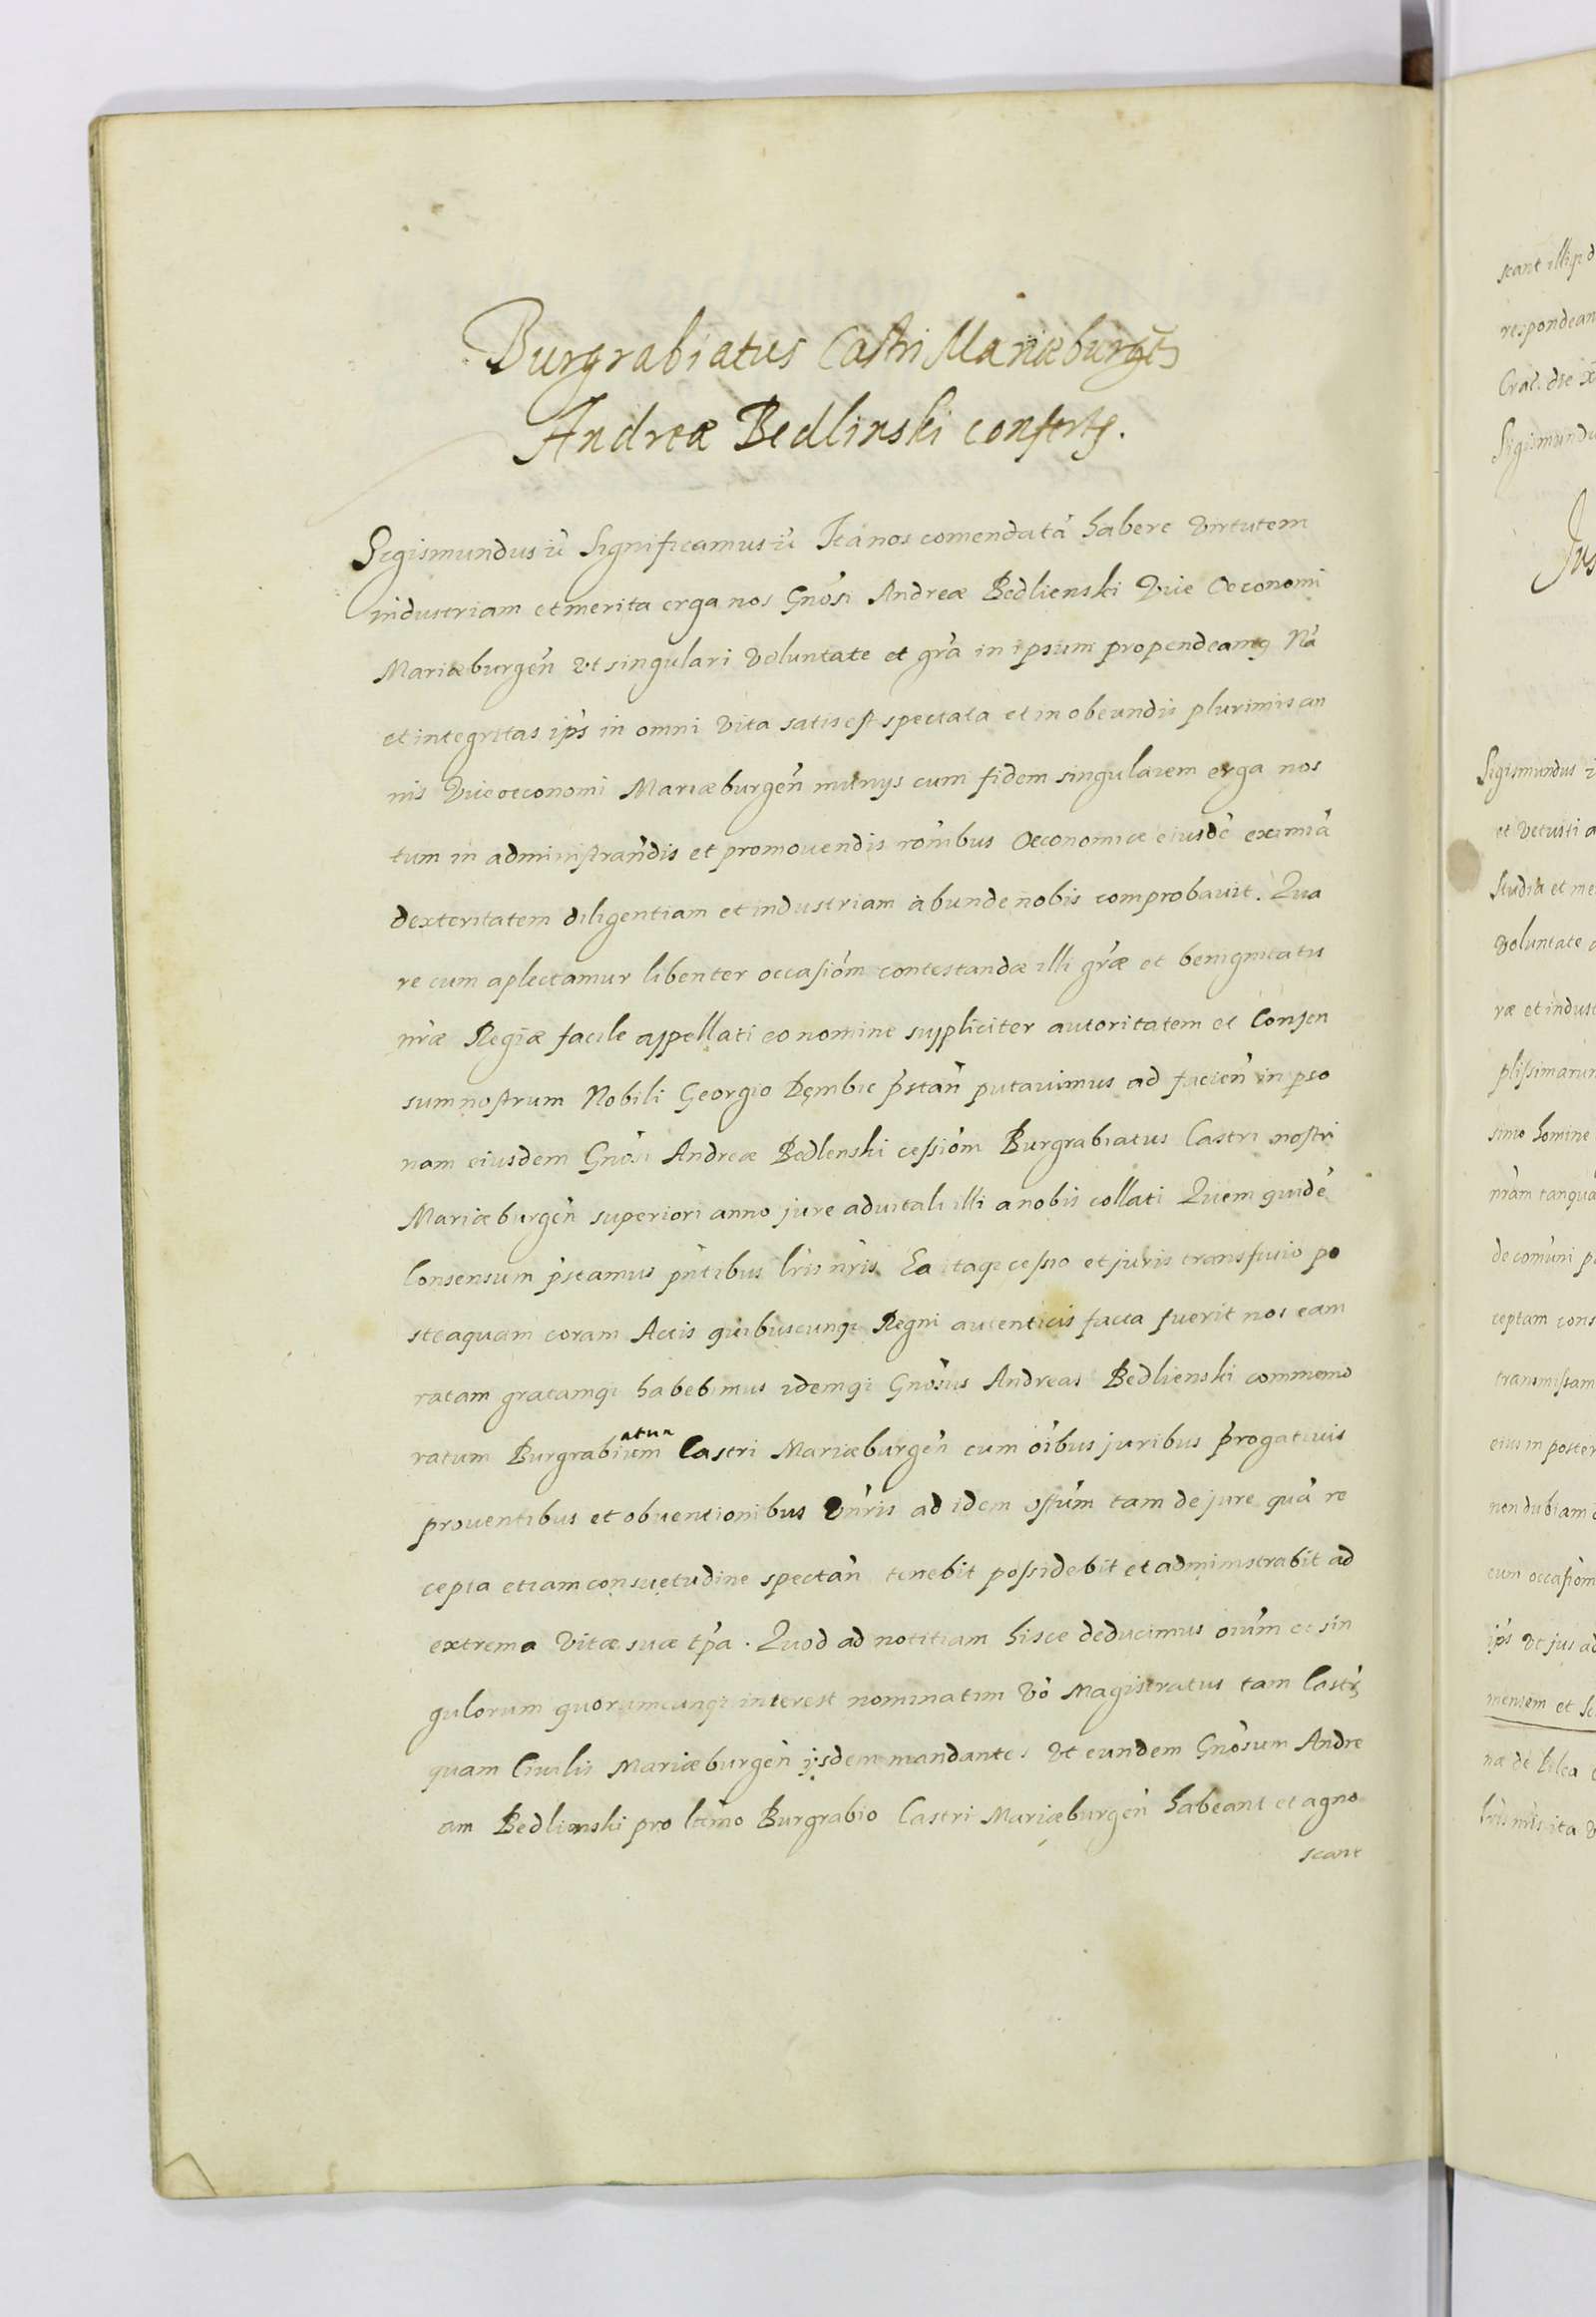 Burgrabiatus Castri Mariæburgen̄
Andreæ Bedlinski confertꝰ.
Sigismundus ic̄ Significamus ic̄ Ita nos comendatā habere virtutem
industriam et merita erga nos Gnōsi Andreæ Bedlienski Vice Oeconomi
Mariæburgen̄ vt singulari voluntate et grā in ipsum propendeamꝰ Nā
et integritas ip̄s in omni vita satis est spectata et in obeundis plurimis an
nis Vice oeconomi Mariæburgen̄ munijs cum fidem singularem erga nos
tum in administrandis et promouendis rōnibus Oeconomiæ eiusdē eximiā
dexteritatem diligentiam et industriam abunde nobis comprobauit. Qua
re cum aplectamur libenter occasiōm contestandæ illi grāæ et benignitatis
nr̄æ Regiæ facile appellati eo nomine suppliciter autoritatem et Consen
sum nostrum Nobili Georgio Dęmbic p̄stan̄ putauimus ad facien̄ in pso
nam eiusdem Gnōsi Andreæ Bedlenski cessiōm Burgrabiatus Castri nostri
Mariæburgen̄ superiori anno jure aduitali illi a nobis collati Quem quidē
Consensum p̄stamus pn̄tibus lr̄is nr̄is. Ea itaqꝫ cessio et juris transfusio po
steaquam coram Actis quibuscunqꝫ Regni autenticis facta fuerit nos eam
ratam gratamqꝫ habebimus idemqꝫ Gnōsus Andreas Bedlienski commemo
ratum Burgrabium atum Castri Mariæburgen̄ cum oībus juribus p̄rogatiuis
prouentibus et obuentionibus vn̄ris ad idem offūm tam de jure quā re
cepta etiam consuetudine spectan̄ tenebit possidebit et administrabit ad
extrema vitæ suæ tp̄a. Quod ad notitiam hisce deducimus oīum et sin
gulorum quorumcunqꝫ interest nominatim vō Magistratus tam Castr̄
quam Ciuilis Mariæburgen̄ ijsdem mandantes vt eundem Gnōsum Andre
am Bedlienski pro ltīmo Burgrabio Castri Mariæburgen̄ habeant et agno
scant